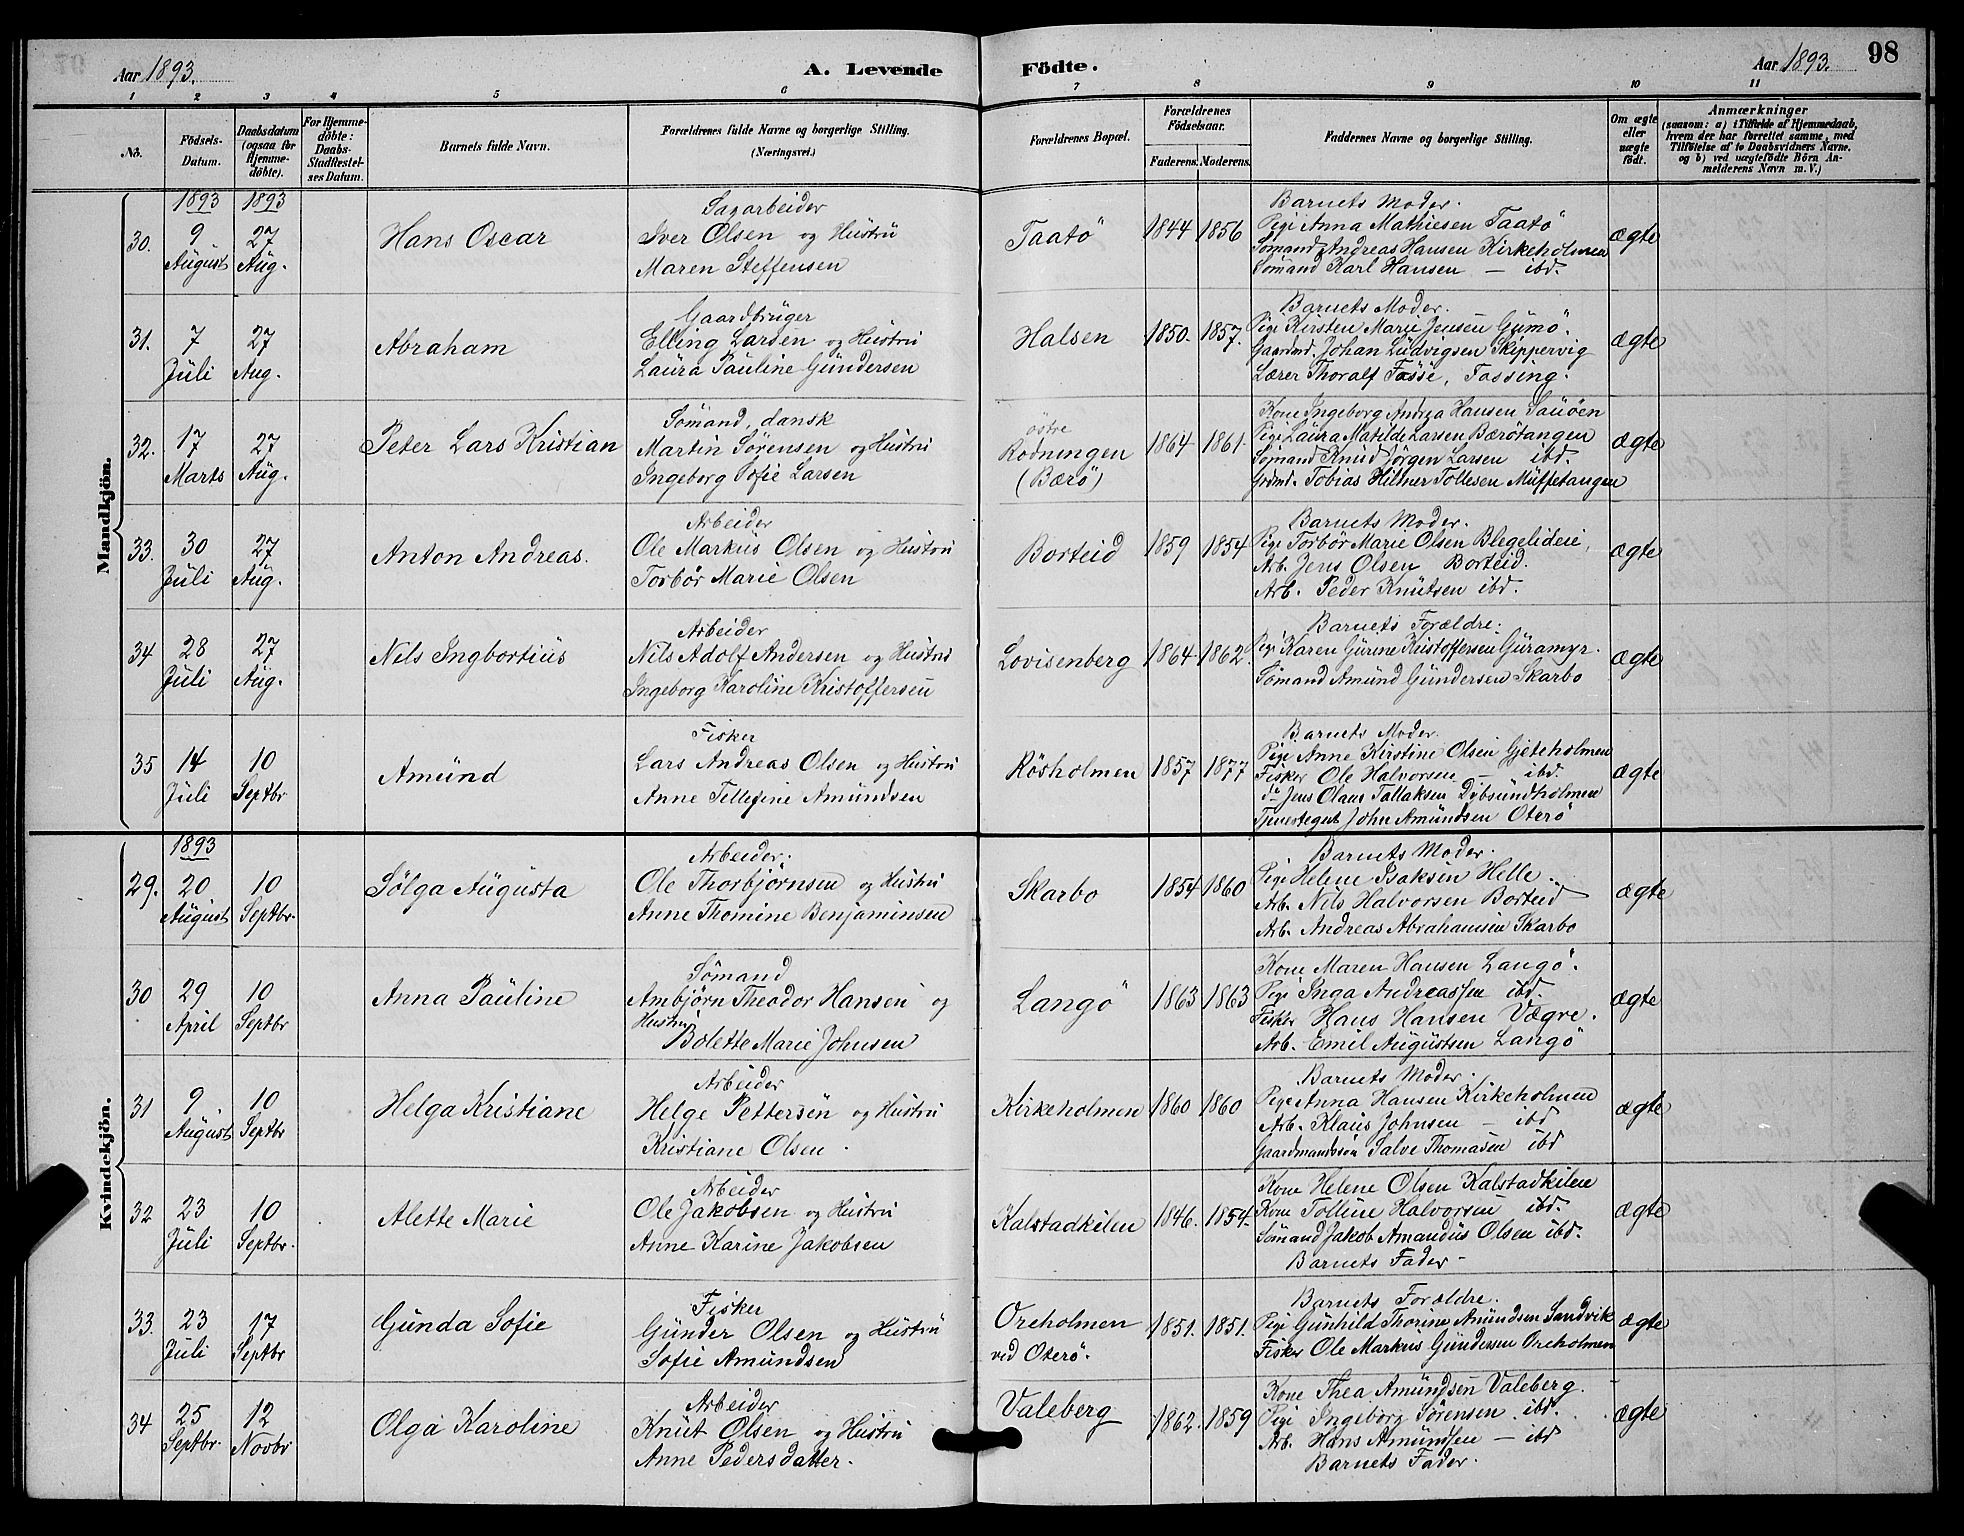 Aar 1893. A. Levende Födte. Aar 1893. 98
1 2 3 4 5 6 7 8 9 10 11
No.
Födsels-Datum.
Daabsdatum (ogsaa for Hjemme-döbte).
For Hjemme-döbte: Daabs-Stadfestel-ses Datum.
Barnets fulde Navn.
Forældrenes fulde Navne og borgerlige Stilling. (Næringsvei.)
Forældrenes Bopæl.
Forældrenes Födselsaar. Faderens. Moderens.
Faddernes Navne og borgerlige Stilling.
Om ægte eller uægte født.
Anmærkninger
(saasom: a) i Tilfælde af Hjemmedaab,
hvem der har forrettet samme, med
Tilføielse af to Daabsvidners Navne.
og b) ved uægtefödte Börn An-
melderens Navn m. V.)
Mandkjön.
1893 1893
30. 9 August 27 Aug. Hans Oscar
Sagarbeider
Iver Olsen og Hustru
Maren Steffensen
Taatö 1844 1856
Barnets Moder.
Pige Anna Mathiesen Taatö
Sömand Andreas Hansen Kirkeholmen
Sömand Karl Hansen — ibd.
ægte
31. 7 Juli 27 Aug. Abraham
Gaardbruger
Elling Larsen og Hustru
Laura Pauline Gundersen
Halsen 1850. 1857.
Barnets Moder.
Pige Kirsten Marie Jensen Gumö.
Gaardmd. Johan Ludvigsen Skippervig
Lærer Thoralf Fosse, Fossing.
ægte
32. 17 Marts 27 Aug. Peter Lars Kristian
Sömand, dansk
Martin Sörensen og Hustru
Ingeborg Sofie Larsen
östre
Rodningen
(Bærö)
1864 1861.
Kone Ingeborg Andrea Hansen Sauöen
Pige Laura Matilde Larsen Bærötangen
Sömand Knud Jörgen Larsen ibd.
Grdmd. Tobias Hilmer Tollesen Muffetangen
ægte
33. 30 Juli 27 Aug. Anton Andreas.
Arbeider
Ole Markus Olsen og Hustru
Torbör Marie Olsen
Borteid 1859 1854
Barnets Moder.
Pige Torbör Marie Olsen Blegelideie,
Arb. Jens Olsen Borteid.
Arb. Peder Knutsen ibd.
ægte
34 28 Juli 27 Aug. Nils Ingbortius
Arbeider
Nils Adolf Andersen og Hustru
Ingeborg Karoline Kristoffersen
Lovisenberg 1864 1862.
Barnets Forældre.
Pige Karen Gurine Kristoffersen Guramyr.
Sömand Amund Gundersen Skarbo
ægte
35 14 Juli 10 Septbr Amund
Fisker
Lars Andreas Olsen og Hustru
Anne Tellefine Amundsen
Rösholmen 1857 1877
Barnets Moder.
Pige Anne Kirstine Olsen Gjeteholmen
Fisker Ole Halvorsen — ibd.
do Jens Olaus Tallaksen Dybsundholmen
Tjenestegut John Amundsen Oterö
ægte
Kvindekjön.
1893
29. 20 August 10 Septbr. Sölga Augusta
Arbeider.
Ole Thorbjörnsen og Hustru
Anne Thomine Benjaminsen
Skarbo 1854 1860
Barnets Moder.
Pige Helene Isaksen Helle.
Arb. Nils Halvorsen Borteid
Arb. Andreas Abrahamsen Skarbo
ægte
30 29 April 10 Septbr Anna Pauline
Sömand
Ambjörn Theodor Hansen og
Hustru
Bolette Marie Johnsen
Langö 1863 1863
Kone Maren Hansen Langö.
Pige Inga Andreassen ibd.
Fisker Hans Hansen Vægre.
Arb. Emil Augustsen Langö
ægte
31 9 August 10 Septbr Helga Kristiane
Arbeider
Helge Pettersen og Hustru
Kristiane Olsen.
Kirkeholmen 1860 1860
Barnets Moder.
Pige Anna Hansen Kirkeholmen
Arb. Klaus Johnsen — ibd
Gaardmandssön Salve Thomasen ibd
ægte
32 23 Juli 10 Septbr. Alette Marie
Arbeider
Ole Jakobsen og Hustru
Anne Karine Jakobsen
Kalstadkilen 1846. 1854.
Kone Helene Olsen Kalstadkilen
Kone Tolline Halvorsen ibd.
Sömand Jakob Amandus Olsen ibd.
Barnets Fader —
ægte
33. 23 Juli 17 Septbr Gunda Sofie
Fisker
Gunder Olsen og Hustru
Sofie Amundsen
Oreholmen
ved Oterö.
1851. 1851.
Barnets Forældre.
Pige Gunhild Thorine Amundsen Sandvik
Fisker Ole Markus Gundersen Oreholmen
ægte
34 25 Septbr. 12 Novbr Olga Karoline
Arbeider
Knut Olsen og Hustru
Anne Pedersdatter.
Valeberg 1862. 1859
Kone Thea Amundsen Valeberg.
Pige Ingeborg Sörensen ibd.
Arb. Hans Amundsen — ibd
Barnets Fader.
ægte